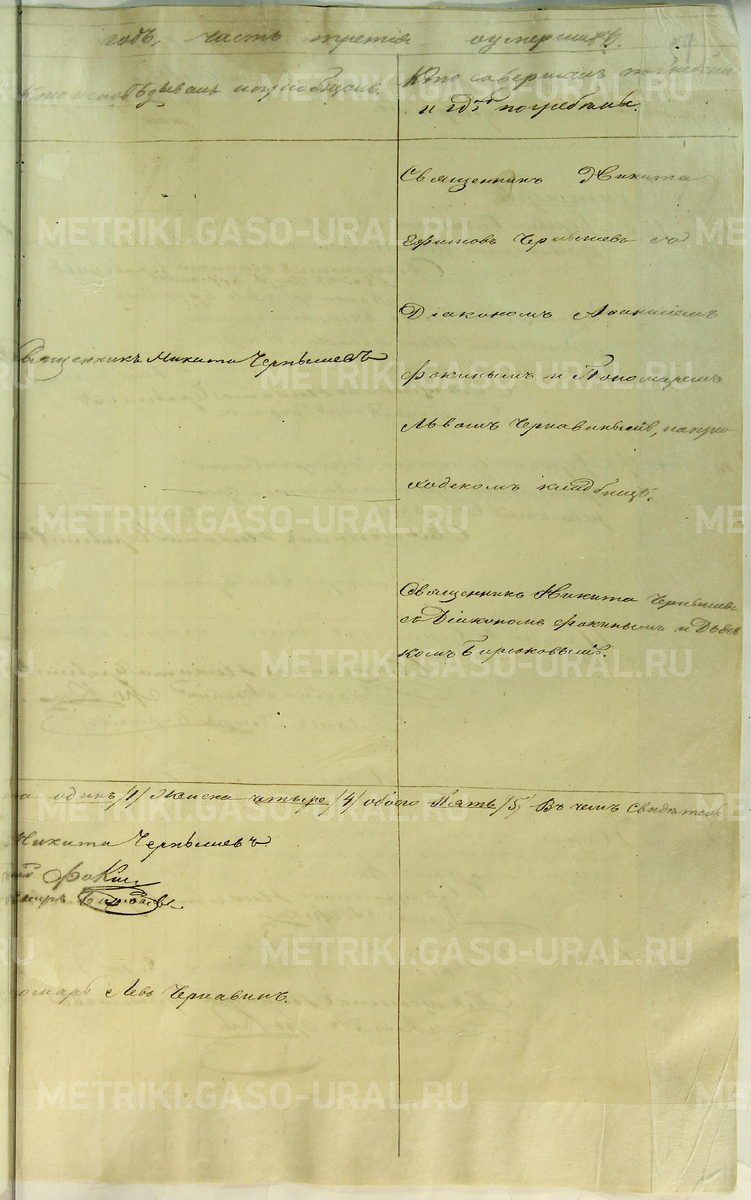 годъ, часть третія оумершихъ.
Кто исповѣдывалъ и пріобщалъ.
Кто совершалъ погребеніе
и гдѣ погребены.
Священникъ Никита
Ефимовъ Чернышевъ со
Діакономъ Аѳанасіемъ
Фокинымъ и Пономаремъ
Львомъ Чернавинымъ, на при-
ходскомъ кладбищѣ.
Священникъ Никита Чернышевъ
Священникъ Никита Чернышевъ
съ Діакономъ Фокинымъ и Дьяч-
комъ Бирюковымъ.
одинъ /1/ Женска четыре /4/ обоего Пять /5/ Въ чемъ свидѣтель
Никита Чернышевъ.
Фокинъ
Бирюковъ
номарь Левъ Чернавинъ.
METRIKI.GASO-URAL.RU